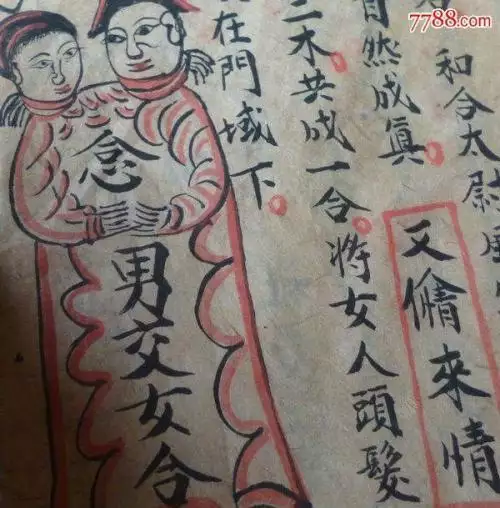 和合太尉
自然成眞。又來情
二木共成一合。將女人頭髮
在門域下。
念
男交女合
7788.com